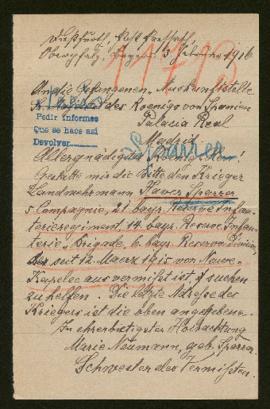 Oberpfalz, Bayern 3 Februar 1916
11793
An die Gefangenen-Auskunftstelle
Sr. Majestät des Koenigs von Spanien
Palacio Real
Madrid
Pedir informes
Que se hace así
Devolver
Sparrer
Allergnädigster
Gestatte mir die Bitte den Krieger
Landwehrmann Xaver Sparrer
5 Compagnie, 21 bayr. Reserve Infan-
terieregiment, 14 bayr. Reserve Infan-
terie-Brigade, 6 bayr. Reserve Division,
der seit 12. Maerz 1915 von Neuve-
Kapelle aus vermißt ist, suchen
zu helfen. Die letzte Adresse des
Kriegers ist die oben angegebene.
In ehrerbietigster Hochachtung
Marie Neumann, geb. Sparrer
Schwester des Vermißten.